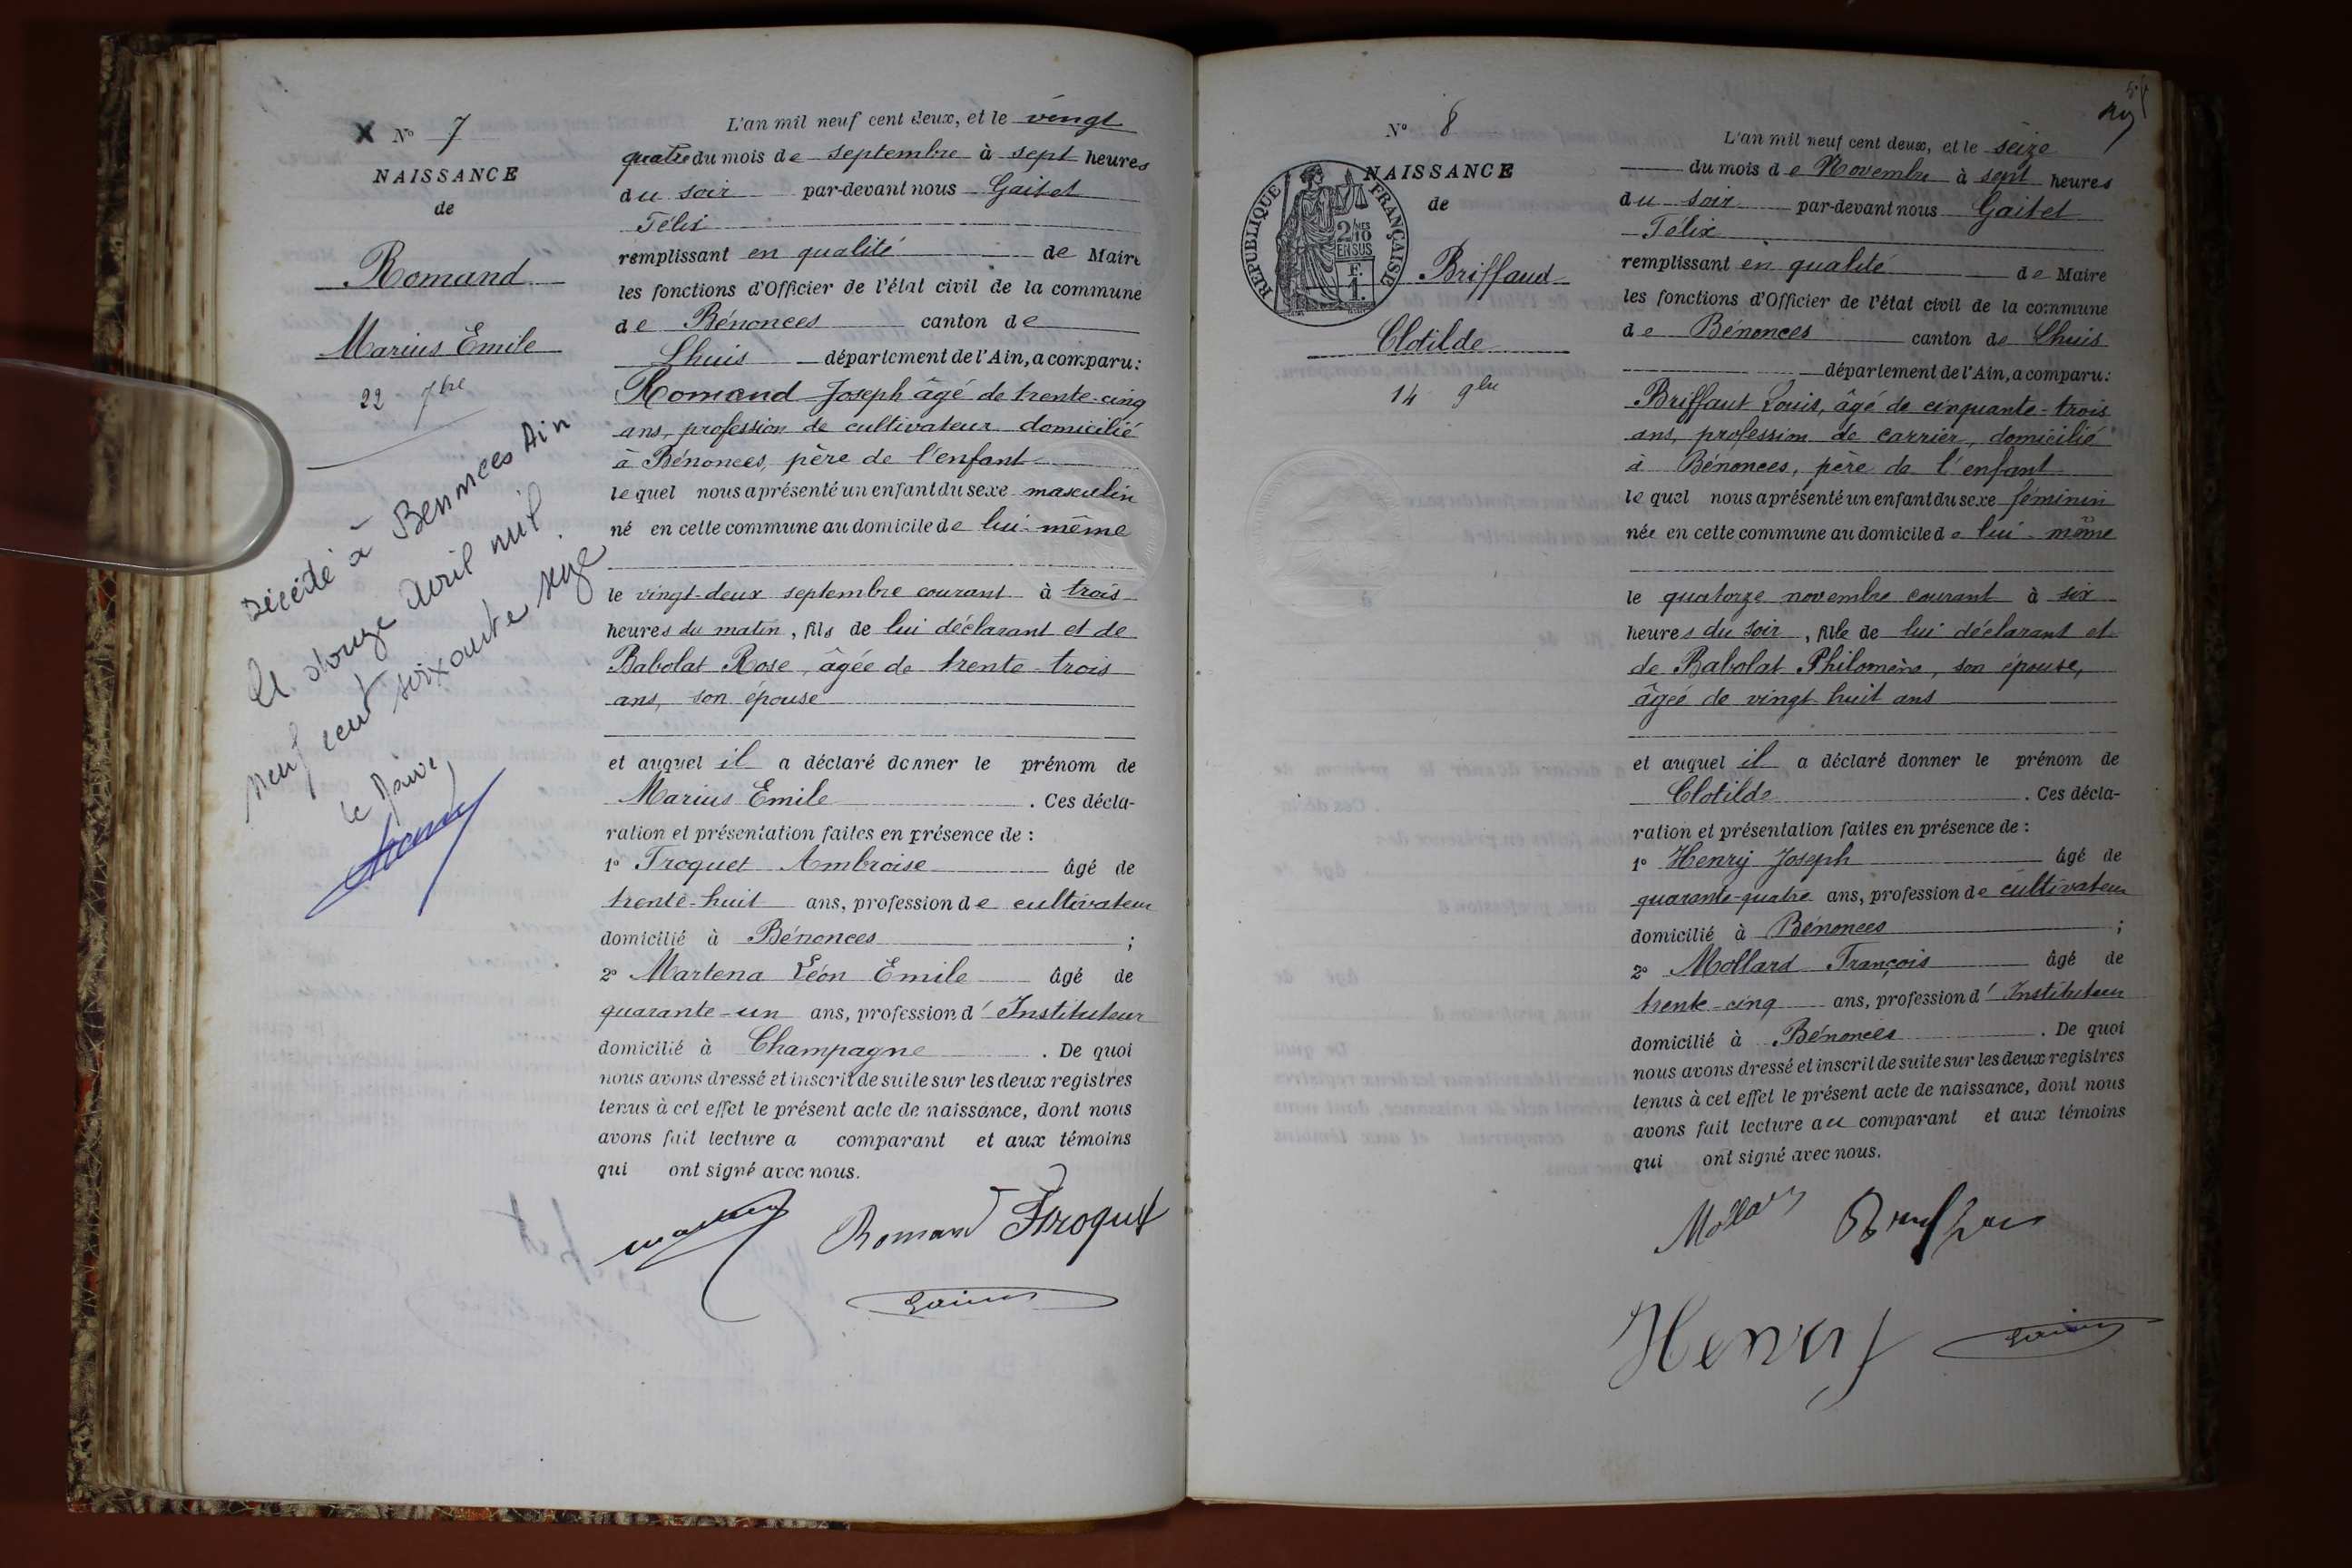 X Nº 7
NAISSANCE
de
Romand
Marius Emile
22 7bre
Décédé à Bennnces Ain
le douze Avril mil
neuf cent soixante seize
le Maire,
L'an mil neuf cent deux, et le vingt
quatre du mois de septembre à sept heures
du soir par-devant nous Gaitet
Félix
remplissant en qualité de Maire
les fonctions d'Officier de l'état civil de la commune
de Bénonces canton de
Lhuis département de l'Ain, a comparu:
Romand Joseph âgé de trente-cinq
ans, profession de cultivateur domicilié
à Bénonces, père de l'enfant
lequel nous a présenté un enfant du sexe masculin
né en cette commune au domicile de lui-même
le vingt-deux septembre courant à trois
heures du matin, fils de lui déclarant et de
Babolat Rose, âgée de trente-trois
ans, son épouse
et auquel il a déclaré donner le prénom de
Marius Emile. Ces décla-
ration et présentation faites en présence de :
1º Troquet Ambroise âgé de
trente-huit ans, profession de cultivateur
domicilié à Bénonces ;
2º Martena Léon Emile âgé de
quarante-un ans, profession d'Instituteur
domicilié à Champagne. De quoi
nous avons dressé et inscrit de suite sur les deux registres
tenus à cet effet le présent acte de naissance, dont nous
avons fait lecture a comparant et aux témoins
qui ont signé avec nous.
Romand Troquet
Gaitet
Nº 8
NAISSANCE
de
REPUBLIQUE FRANÇAISE
2/10 MES
EN SUS
F.
1.
Briffaud
Clotilde
14 9bre
L'an mil neuf cent deux, et le seize
du mois de Novembre à sept heures
du soir par-devant nous Gaitet
Félix
remplissant en qualité de Maire
les fonctions d'Officier de l'état civil de la commune
de Bénonces canton de Lhuis
département de l'Ain, a comparu:
Briffaut Louis, âgé de cinquante-trois
ans, profession de carrier, domicilié
à Bénonces, père de l'enfant
lequel nous a présenté un enfant du sexe féminin
née en cette commune au domicile de lui-même
le quatorze novembre courant à six
heures du soir, fille de lui déclarant et
de Babolat Philomène, son épouse,
âgée de vingt-huit ans
et auquel il a déclaré donner le prénom de
Clotilde. Ces décla-
ration et présentation faites en présence de :
1º Henry Joseph âgé de
quarante-quatre ans, profession de cultivateur
domicilié à Bénonces ;
2º Mollard François âgé de
trente-cinq ans, profession d'Instituteur
domicilié à Bénonces. De quoi
nous avons dressé et inscrit de suite sur les deux registres
tenus à cet effet le présent acte de naissance, dont nous
avons fait lecture au comparant et aux témoins
qui ont signé avec nous.
Mollard
Henry Gaitet